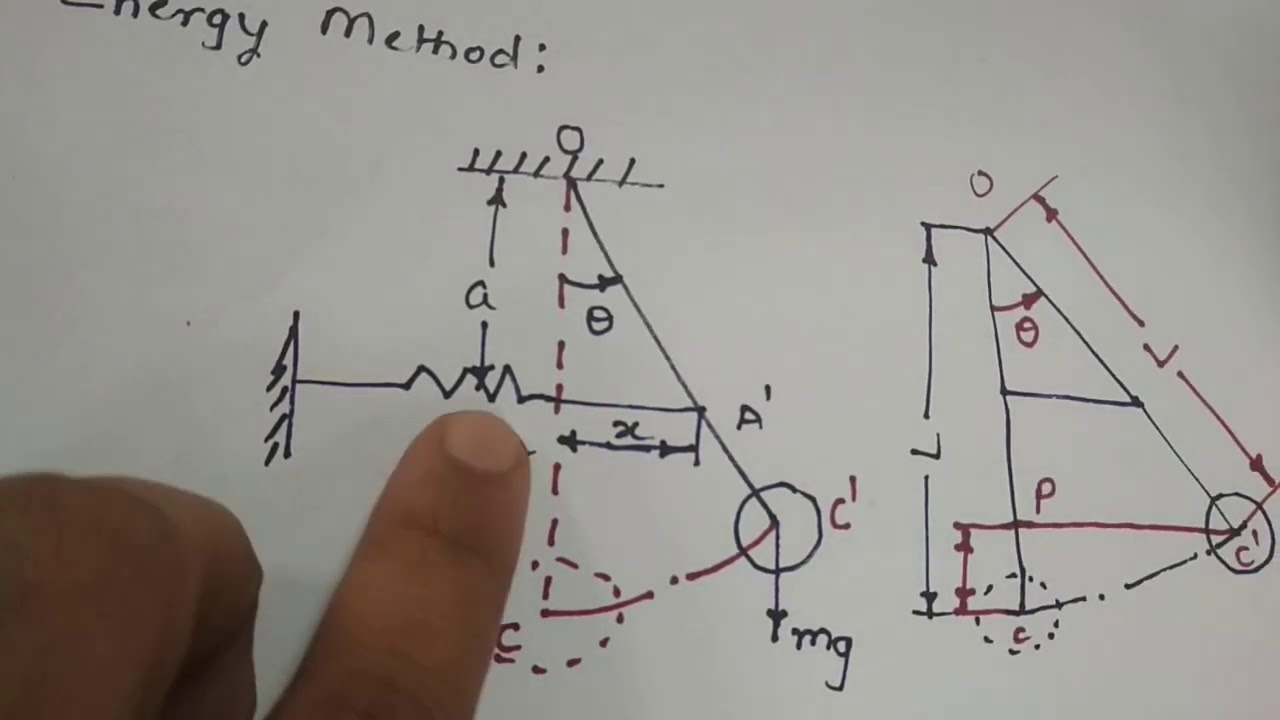 Energy Method:
O
a
θ
x
A'
C'
C
mg
O
θ
L
L
P
C'
C